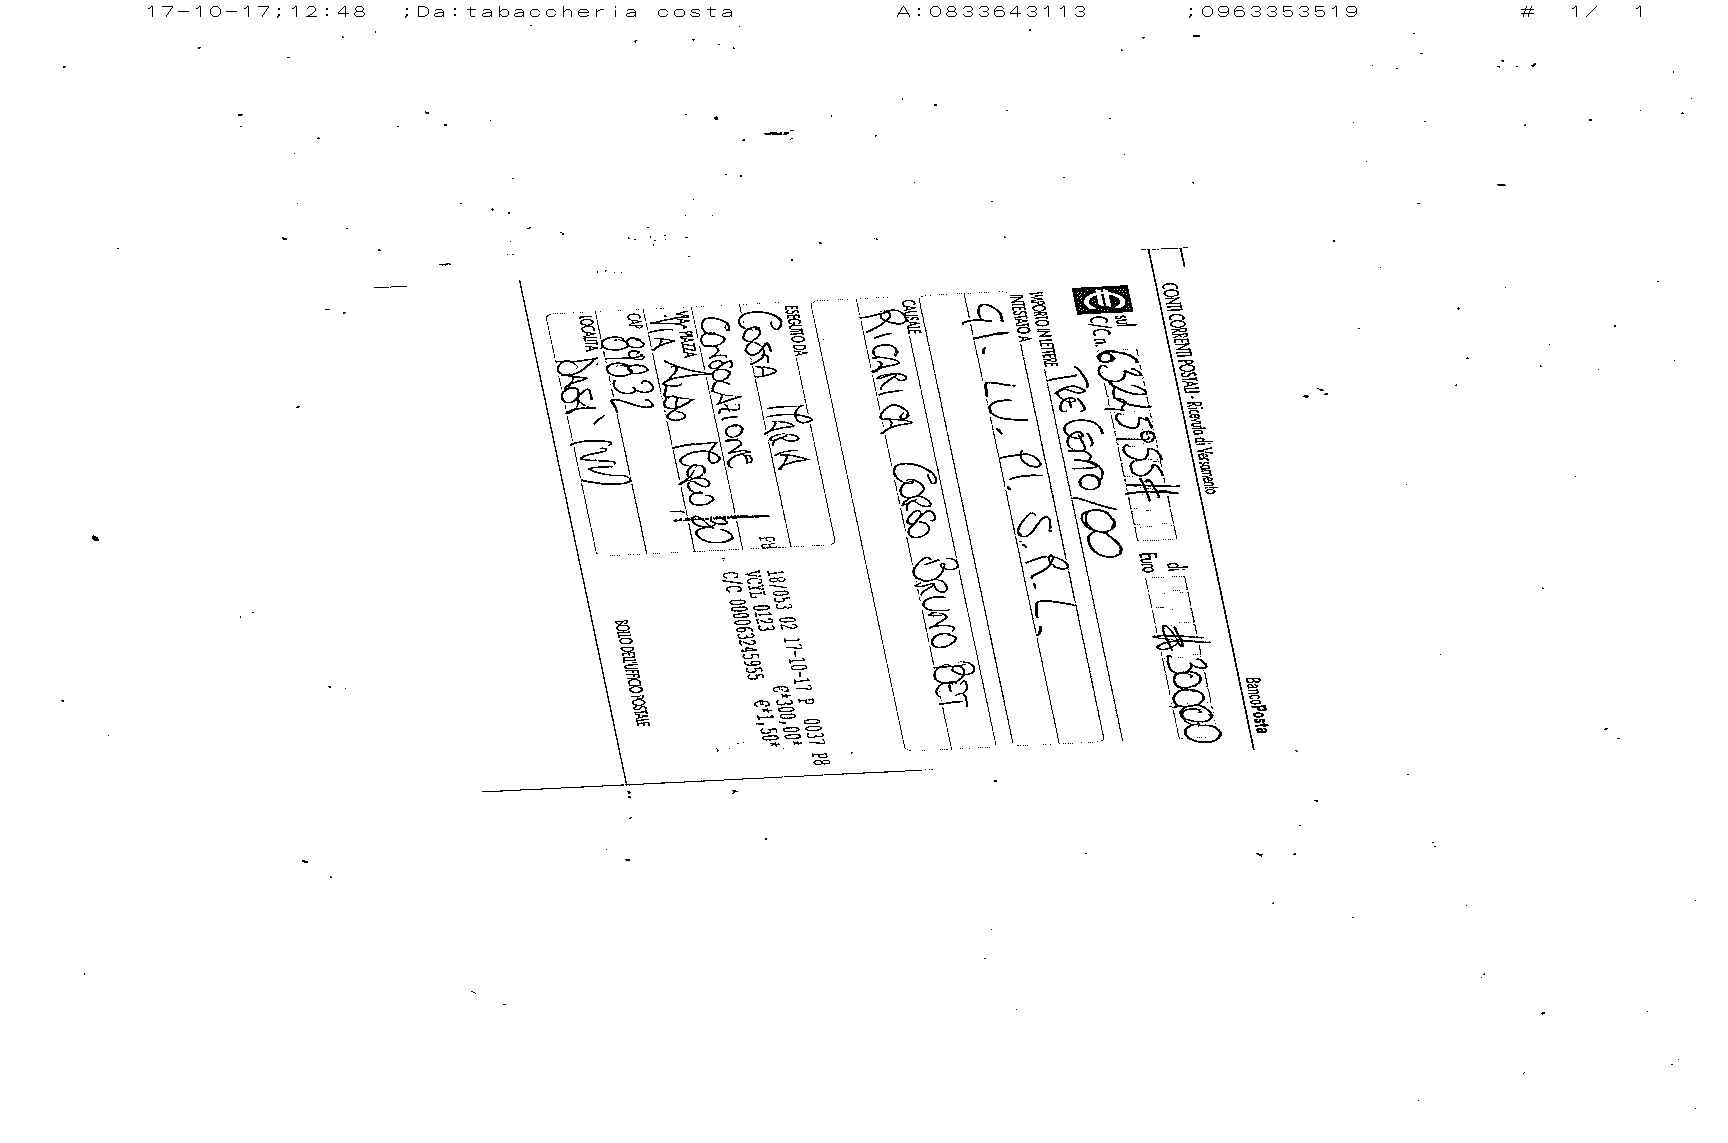 17-10-17;12:48 ;Da:tabaccheria costa A:0833643113 ;0963353519 # 1/ 1
CONTI CORRENTI POSTALI - Ricevuta di Versamento BancoPosta
sul C/C n. 63245955# di Euro #30000
IMPORTO IN LETTERE TRECENTO/00
INTESTATO A
GI. LU. PI. S.R.L.
CAUSALE
RICARICA CORSO BRUNO BET
ESEGUITO DA
COSTA MARIA
CONSOLAZIONE
VIA - PIAZZA
VIA ALDO MORO 80
CAP 89832
LOCALITÀ
DASA' (VV)
18/053 02 17-10-17 P 0037 P8
VCYL 0123 €*300,00*
C/C 000063245955 €*1,50*
BOLLO DELL'UFFICIO POSTALE